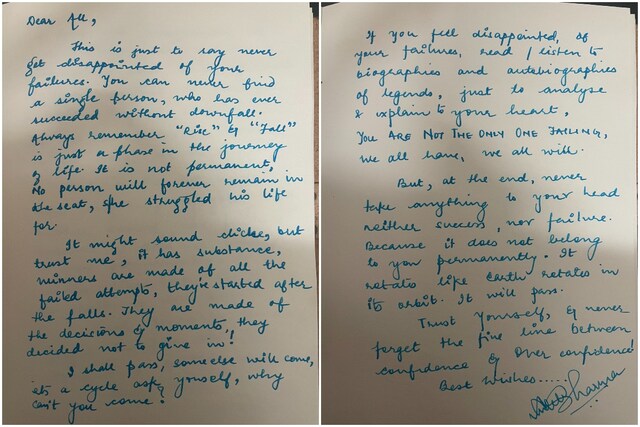 Dear All,
This is just to say never
get disappointed of your
failures. You can never find
a single person, who has ever
succeeded without downfall.
Always remember "Rise" & "Fall"
is just a phase in the journey
of life. It is not permanent,
No person will forever remain in
the seat, he struggled his life
for.
It might sound cliche, but
trust me, it has substance,
winners are made of all the
failed attempts, they're started after
the falls. They are made of
the decisions & moments, they
decided not to give in!
I shall pass, someelse will come,
its a cycle ask yourself, why
can't you come?
If you fell disappointed, of
your failures, read / listen to
biographies and autobiographies
of legends, just to analyse
& explain to your heart,
YOU ARE NOT THE ONLY ONE FAILING,
we all have, we all will.
But, at the end, never
take anything to your head
neither success, nor failure.
Because it does not belong
to you permanently. It
rotates like Earth rotates in
its orbit. It will pass.
Trust yourself, & never
forget the fine line between
confidence & over confidence!
Best wishes.....